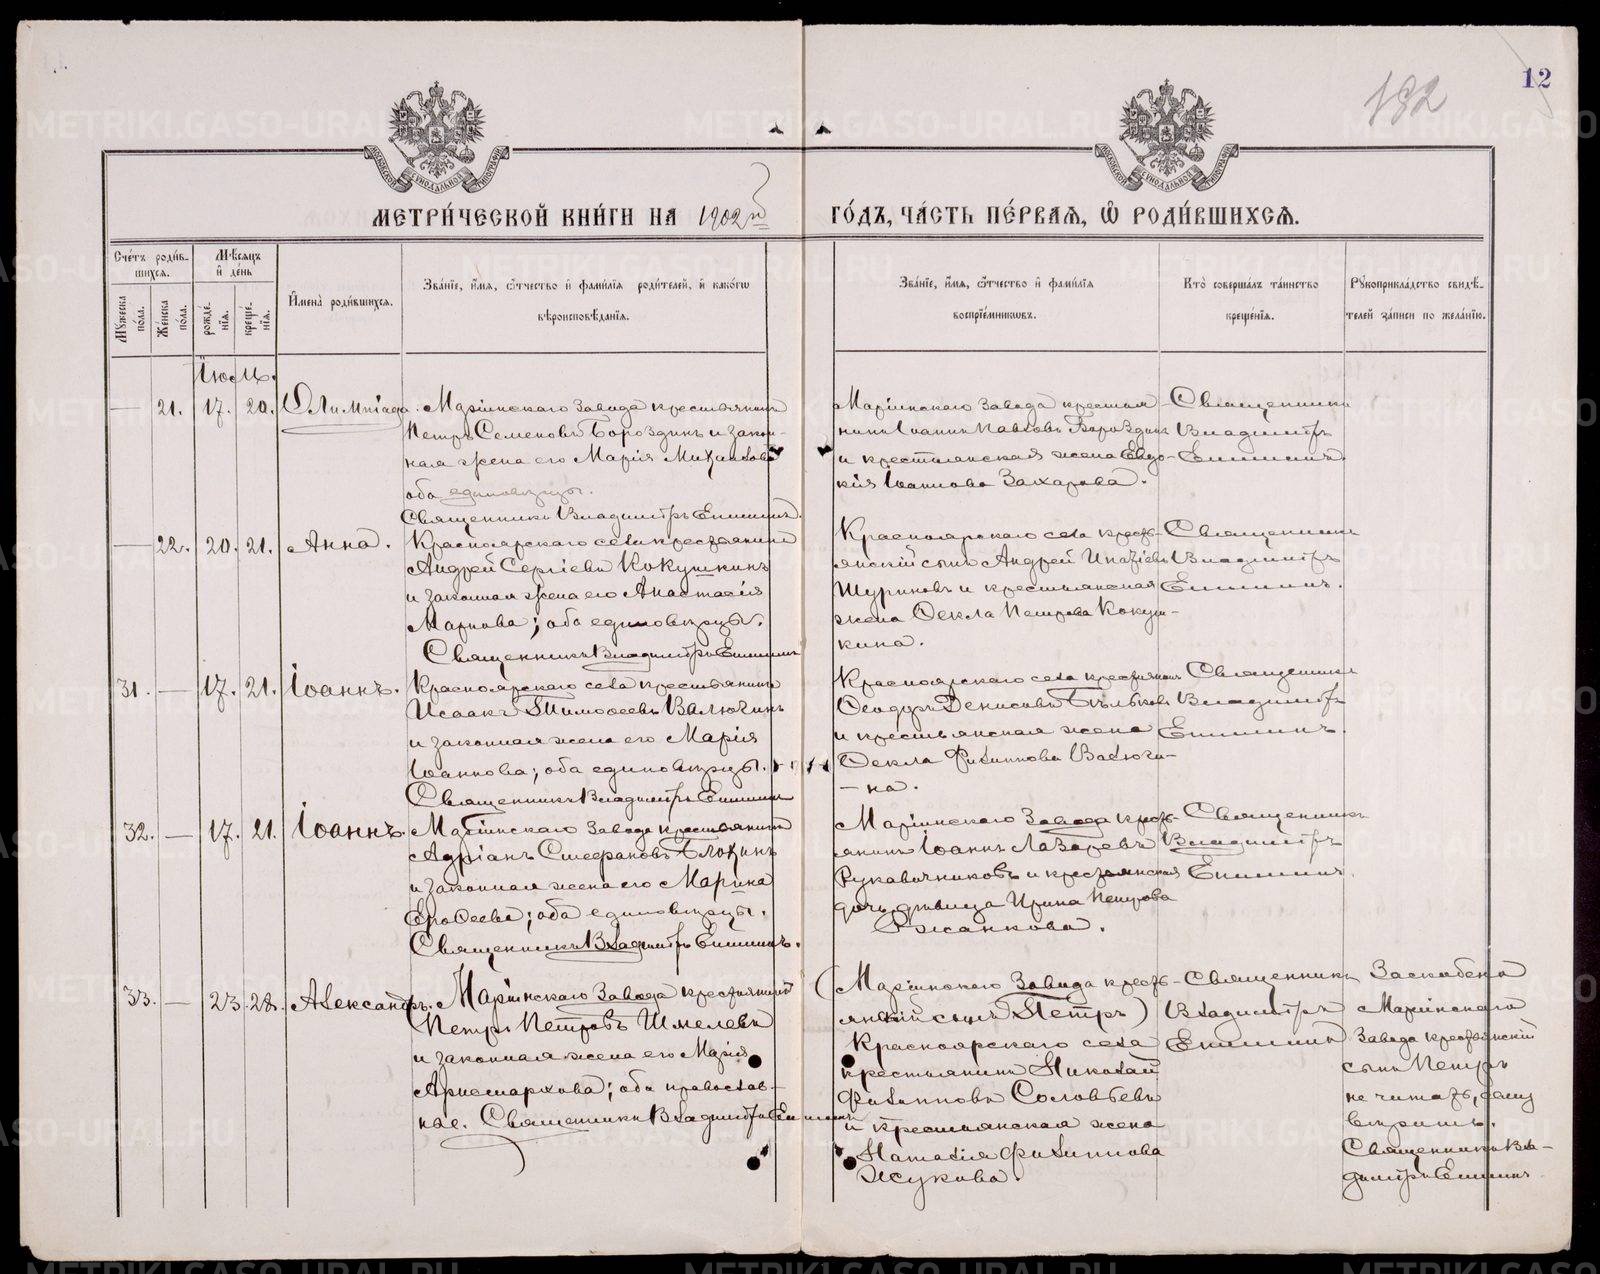 12
182
МЕТРИ́ЧЕСКОЙ КНИ́ГИ НА 1902й ГО́ДЪ, ЧА́СТЬ ПЕ́РВАЯ, Ѡ РОДИ́ВШИХСЯ.
Сче́тъ роди́в-
шихся.
Мꙋ́жеска по́ла.
Же́нска по́ла.
Мѣ́сяцъ и҆ де́нь
рожде́-нїя.
креще́-нїя.
И҆мена̀ роди́вшихся.
Зва́нїе, и҆́мя, ѻ҆́тчество и҆ фами́лїя роди́телей, и҆ како́гѡ
вѣроисповѣ́данїя.
Зва́нїе, и҆́мя, ѻ҆́тчество и҆ фами́лїя
воспрїе́мникѡвъ.
Кто̀ соверша́лъ та́инство
креще́нїя.
Рꙋкоприкла́дство свидѣ́-
телей за́писи по жела́нїю.
Іюль.
— 21. 17. 20. Олимпіада. Маріинскаго завода крестьянинъ
Петръ Семеновъ Бороздинъ и закон-
ная жена его Марія Михаилова
оба единовѣрцы.
Священникъ Владиміръ Епишинъ.
Маріинскаго завода крестья-
нинъ Іоаннъ Павловъ Бороздинъ
и крестьянская жена Евдо-
кія Іоаннова Захарова.
Священникъ
Владиміръ
Епишинъ.
— 22. 20. 21. Анна. Красноярскаго села крестьянинъ
Андрей Сергіевъ Кокушкинъ
и законная жена его Анастасія
Маркова; оба единовѣрцы.
Священникъ Владиміръ Епишинъ
Красноярскаго села кресть-
янскій сынъ Андрей Игнатіевъ
и крестьянская
жена Ѳекла Петрова Кокуш-
кина.
Священникъ
Владиміръ
Епишинъ.
31. — 17. 21. Іоаннъ. Красноярскаго села крестьянинъ
Исаакъ Тимоѳеевъ Валюгинъ
и законная жена его Марія
Іоаннова; оба единовѣрцы.
Священникъ Владиміръ Епишинъ
Красноярскаго села крестьянинъ
Ѳеодоръ Денисовъ Бѣльковъ
и крестьянская жена
Ѳекла Филиппова Валюги-
-на.
Священникъ
Владиміръ
Епишинъ.
32. — 17. 21. Іоаннъ. Маріинскаго завода крестьянинъ
Адріанъ Стефановъ Блохинъ
и законная жена его Марина
Ероѳеева; оба единовѣрцы.
Священникъ Владиміръ Епишинъ.
Маріинскаго завода кресть-
янинъ Іоаннъ Лазаревъ
Рукавичниковъ и крестьянская
дочь дѣвица Ирина Петрова
Ржанкова.
Священникъ
Владиміръ
Епишинъ.
33. — 23. 28. Александръ. Маріинскаго завода крестьянинъ
Петръ Петровъ Шмелевъ
и законная жена его Марія
Аристархова; оба православ-
ные. Священникъ Владиміръ Епишинъ
(Маріинскаго завода кресть-
янскій сынъ Петръ)
Красноярскаго села
крестьянинъ Николай
Филипповъ Соловьевъ
и крестьянская жена
Наталія Филиппова
Жукова.
Священникъ
Владиміръ
Епишинъ
Маріинскаго
завода крестьянскій
сынъ Петръ
Священникъ Вла-
диміръ Епишинъ